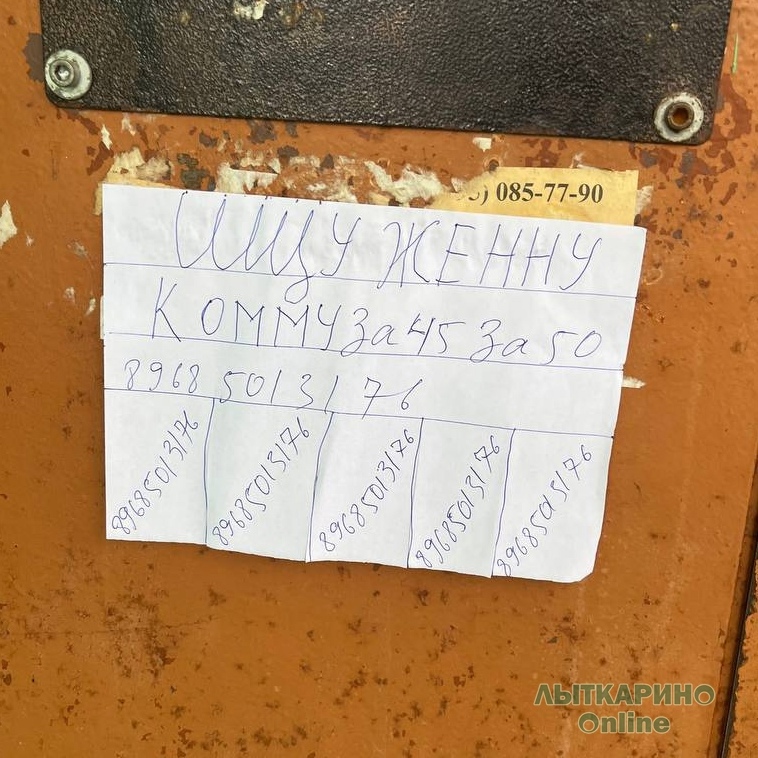 5) 085-77-90
ИЩУ ЖЕННУ
КОММУ За 45 За 50
8968 5013176
89685013176
89685013176
89685013176
89685013176
89685013176
ЛЫТКАРИНО
Online